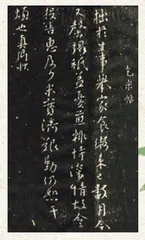 乞米帖
拙於生事舉家食粥來已數月今
又罄竭祇益憂煎輒恃深情故令
投告惠及少米實濟艱勤仍恕干
煩也真卿狀